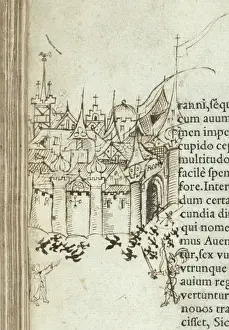 ranni, sequ
cum auum
men impe
cupido cep
multitudo
facilè spen
fore. Inter
dum certa
cundia dit
qui nome
mus Auen
tur, sex vu
vtrunque
auium reg
vertuntur
nouos tra
cisset, Sic